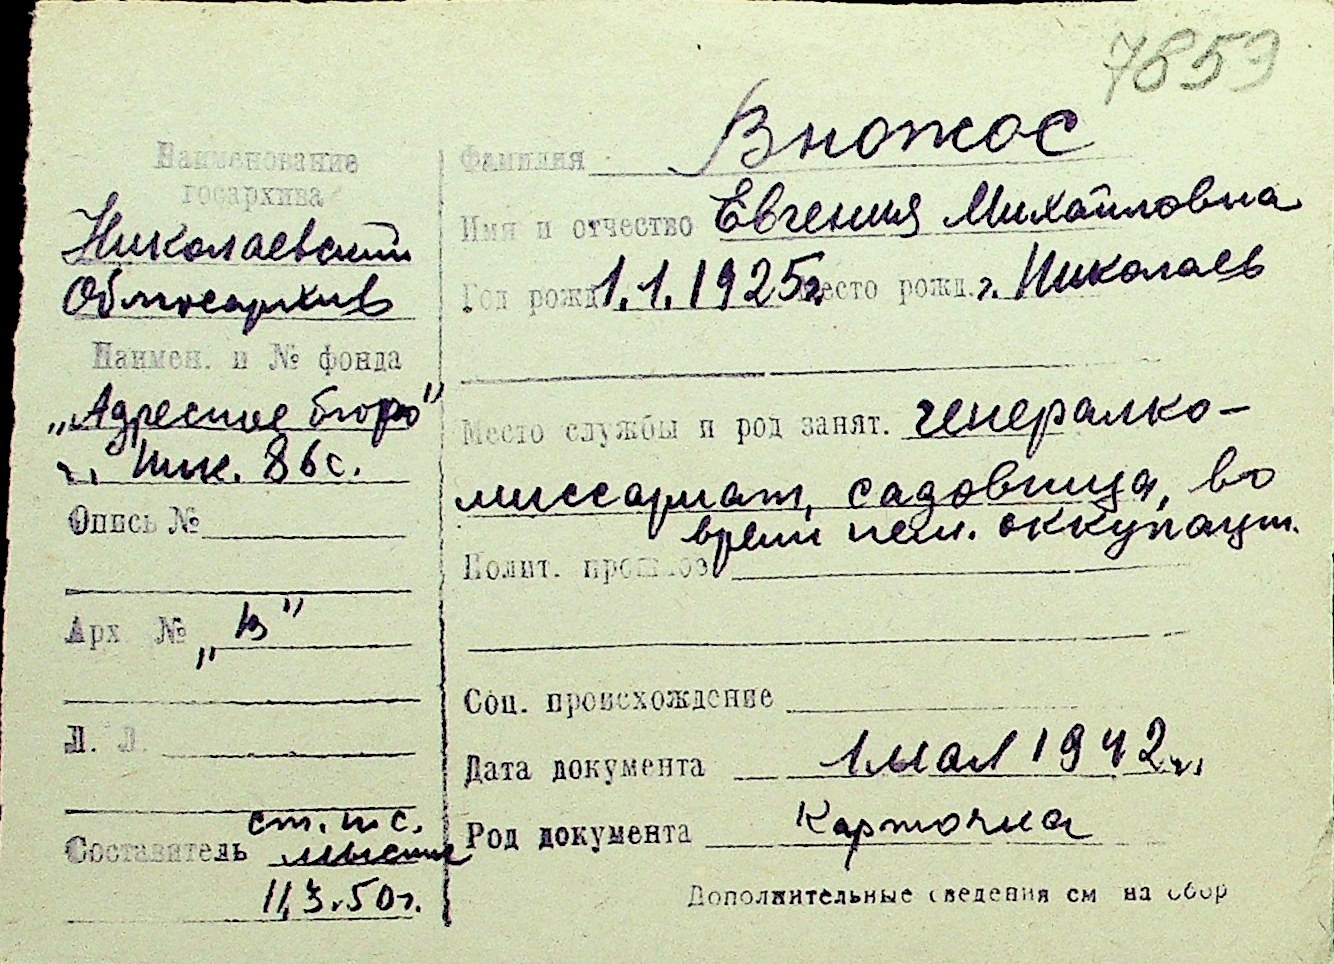 7859
Наименование
госархива
Николаевский
Облгосархив
Наимен. и № фонда
„Адресное бюро"
г. Ник. 86с.
Опись №
Арх №
„В"
Л. Л.
ст. т с.
Составитель
11,3.50г.
Фамилия Вножос
Имя и отчество Евгения Михайловна
Год рожд 1.1.1925г. место рожд. г. Николаев
Место службы и род занят. генералко-
миссариат, садовница, во
время нем. оккупации.
Полит. прогноз
Соц. происхождение
Дата документа 1 мая 1942 г.
Род документа Карточка
Дополнительные сведения см на обор